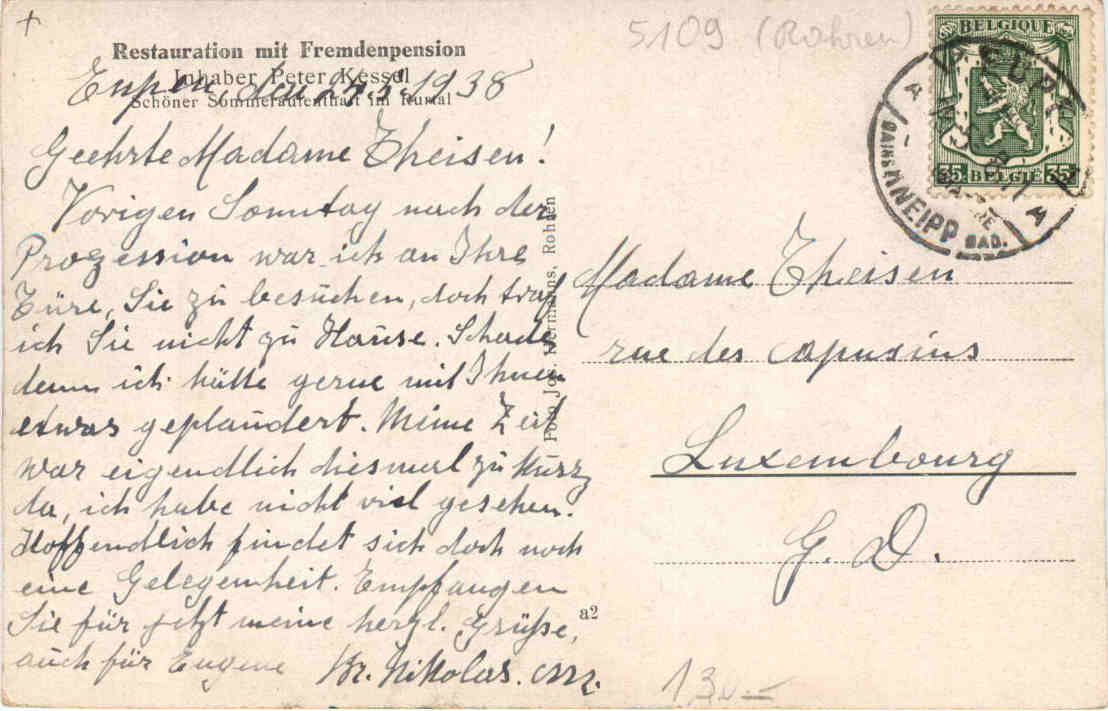 5109 (Rohren)
Restauration mit Fremdenpension
Inhaber Peter Kessel
Schöner Sommeraufenthalt im Rurtal
Eupen, den 1938
Geehrte Madame Theisen!
Vorigen Sonntag nach der
Prozession war ich an Ihre
Türe, Sie zu besuchen, doch traf
ich Sie nicht zu Hause. Schade
denn ich hätte gerne mit Ihnen
etwas geplaudert. Meine Zeit
war eigendlich diesmal zu kurz
da, ich habe nicht viel gesehen.
Hoffendlich findet sich doch noch
eine Gelegenheit. Empfangen
Sie für jetzt meine herzl. Grüße,
auch für Eugene Br. Nikolas.
Foto Jos. Rohren
a2
BELGIQUE
35 BELGIË 35
EUPEN
BAINS KNEIPP BAD.
Madame Theisen
rue des Capusins
Luxembourg
G. D.
130.—